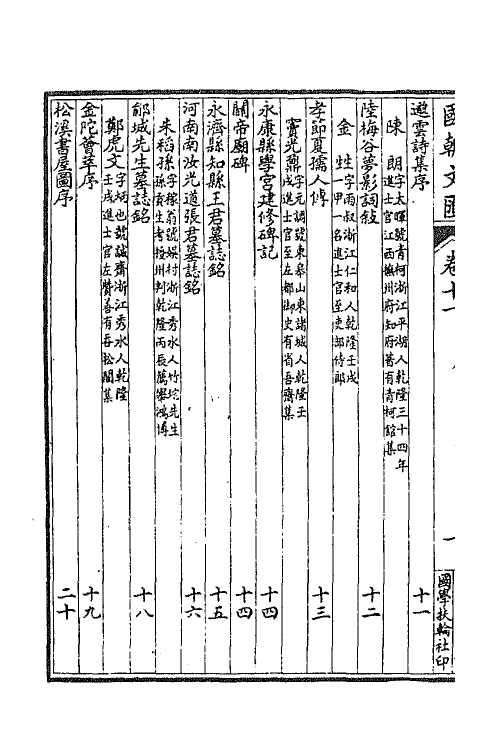 國朝文匯
卷十一
一
國學扶輪社印
遯雲詩集序 十一
陳朗 字太暉號青柯浙江平湖人乾隆三十四年
進士官江西撫州府知府著有青柯館集
陸梅谷夢影詞敍 十二
金甡 字雨叔浙江仁和人乾隆壬戌
一甲一名進士官至吏部侍郎
孝節夏孺人傳 十三
竇光鼐 字元調號東臯山東諸城人乾隆壬
戌進士官至左都御史有省吾齋集
永康縣學宮建修碑記 十四
關帝廟碑 十四
永濟縣知縣王君墓誌銘 十五
河南南汝光道張君墓誌銘 十六
朱稻孫 字稼翁號娛村浙江秀水人竹垞先生
孫貢生考授州判乾隆丙辰薦舉鴻博
郁城先生墓誌銘 十八
鄭虎文 字炳也號誠齋浙江秀水人乾隆
壬戌進士官左贊善有吞松閣集
金陀薈萃序 十九
松溪書屋圖序 二十